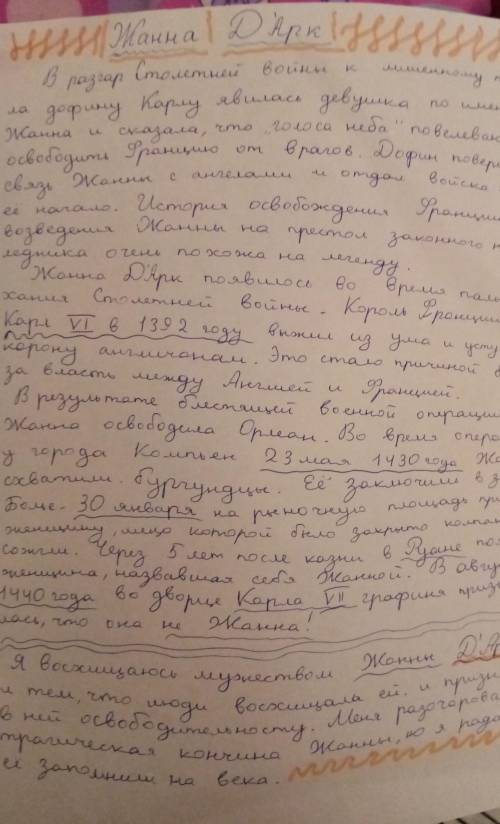 Жанна Д'Арк
В разгар Столетней войны к лишенному п
ла дофину Карлу явилась девушка по име
Жанна и сказала, что "голоса неба" повелеваю
освободить Францию от врагов. Дофин повери
связь Жанны с ангелами и отдал войска
её начало. История освобождения Франции
возведения Жанны на престол законного на
ледника очень похожа на легенду.
Жанна Д'Арк появилось во время
хания Столетней войны. Король Франции
Карл VI в 1392 году выжил из ума и усту
корону англичанам. Это стало причиной б
за власть между Англией и Францией.
В результате блестящей военной операции
Жанна освободила Орлеан. Во время опера
у города Компьен 23 мая 1430 года Жа
схватили бургундцы. Её заключили в з
Боме. 30 января на рыночную площадь при
женщину, лицо которой было закрыто
сожгли. Через 5 лет после казни в Руане поя
женщина, назвавшая себя Жанной. В авгус
1440 года во дворце Карла VII графиня призн
лась, что она не Жанна!
Я восхищаюсь мужеством Жанны Д'Ар
и тем, что люди восхищала ей. и призна
в ней освободительносту. Меня разочарова
трагическая кончина Жанны, но я рада
её запомнили на века.